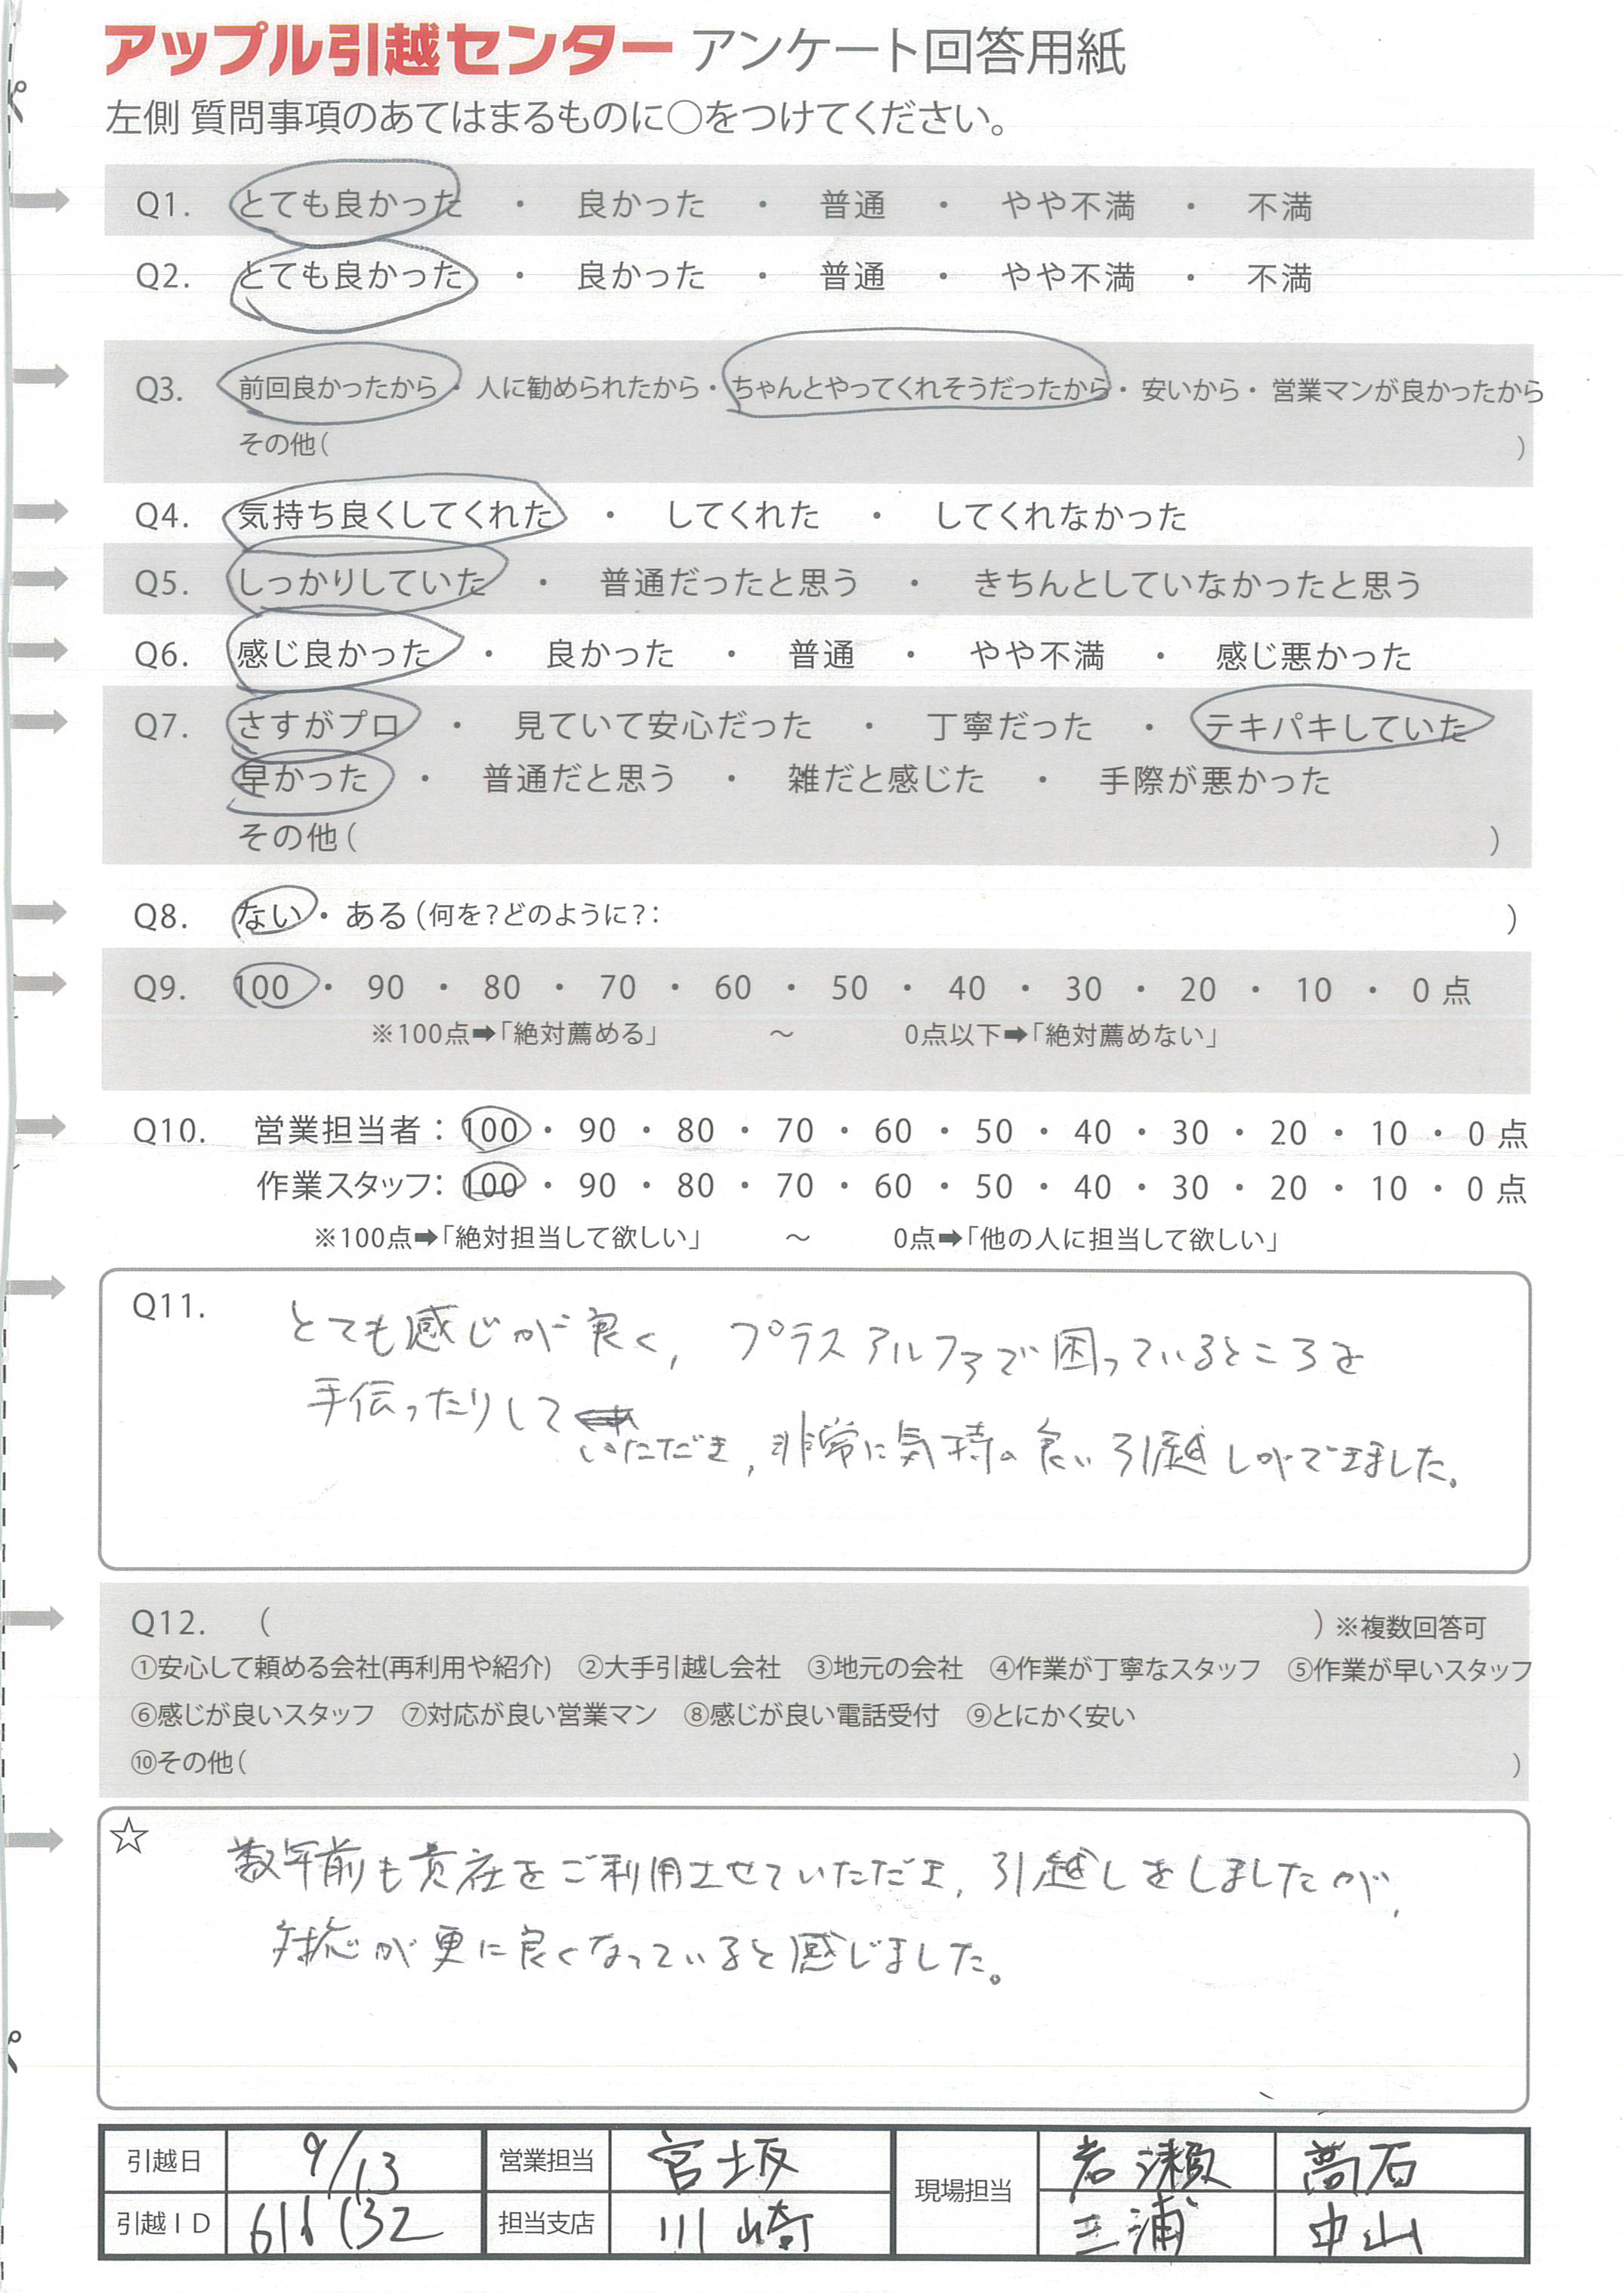 アップル引越センター アンケート回答用紙
左側 質問事項のあてはまるものに○をつけてください。
Q1. とても良かった ・ 良かった ・ 普通 ・ やや不満 ・ 不満
Q2. とても良かった ・ 良かった ・ 普通 ・ やや不満 ・ 不満
Q3. 前回良かったから・人に勧められたから・ちゃんとやってくれそうだったから・安いから・営業マンが良かったから
その他( )
Q4. 気持ち良くしてくれた ・ してくれた ・ してくれなかった
Q5. しっかりしていた ・ 普通だったと思う ・ きちんとしていなかったと思う
Q6. 感じ良かった ・ 良かった ・ 普通 ・ やや不満 ・ 感じ悪かった
Q7. さすがプロ ・ 見ていて安心だった ・ 丁寧だった ・ テキパキしていた
早かった ・ 普通だと思う ・ 雑だと感じた ・ 手際が悪かった
その他( )
Q8. ない・ある(何を?どのように?: )
Q9. 100 ・ 90 ・ 80 ・ 70 ・ 60 ・ 50 ・ 40 ・ 30 ・ 20 ・ 10 ・ 0 点
※100点➡「絶対薦める」 ～ 0点以下➡「絶対薦めない」
Q10. 営業担当者: 100 ・ 90 ・ 80 ・ 70 ・ 60 ・ 50 ・ 40 ・ 30 ・ 20 ・ 10 ・ 0 点
作業スタッフ: 100 ・ 90 ・ 80 ・ 70 ・ 60 ・ 50 ・ 40 ・ 30 ・ 20 ・ 10 ・ 0 点
※100点➡「絶対担当して欲しい」 ～ 0点➡「他の人に担当して欲しい」
Q11. とても感じが良く, プラスアルファで困っているところを
手伝ったりして
いただき, 非常に気持の良い引越しができました。
Q12. ( ) ※複数回答可
①安心して頼める会社(再利用や紹介) ②大手引越し会社 ③地元の会社 ④作業が丁寧なスタッフ ⑤作業が早いスタッフ
⑥感じが良いスタッフ ⑦対応が良い営業マン ⑧感じが良い電話受付 ⑨とにかく安い
⑩その他( )
☆ 数年前も貴社をご利用させていただき, 引越しをしましたが,
対応が更に良くなっていると感じました。
引越日 9/13 営業担当 宮坂 現場担当 岩瀬 高石
引越ID 616132 担当支店 川崎 三浦 中山